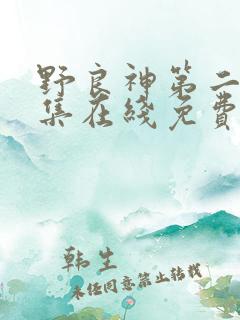 野良神第二
集在綫免費
韩生
未经同意禁止转载